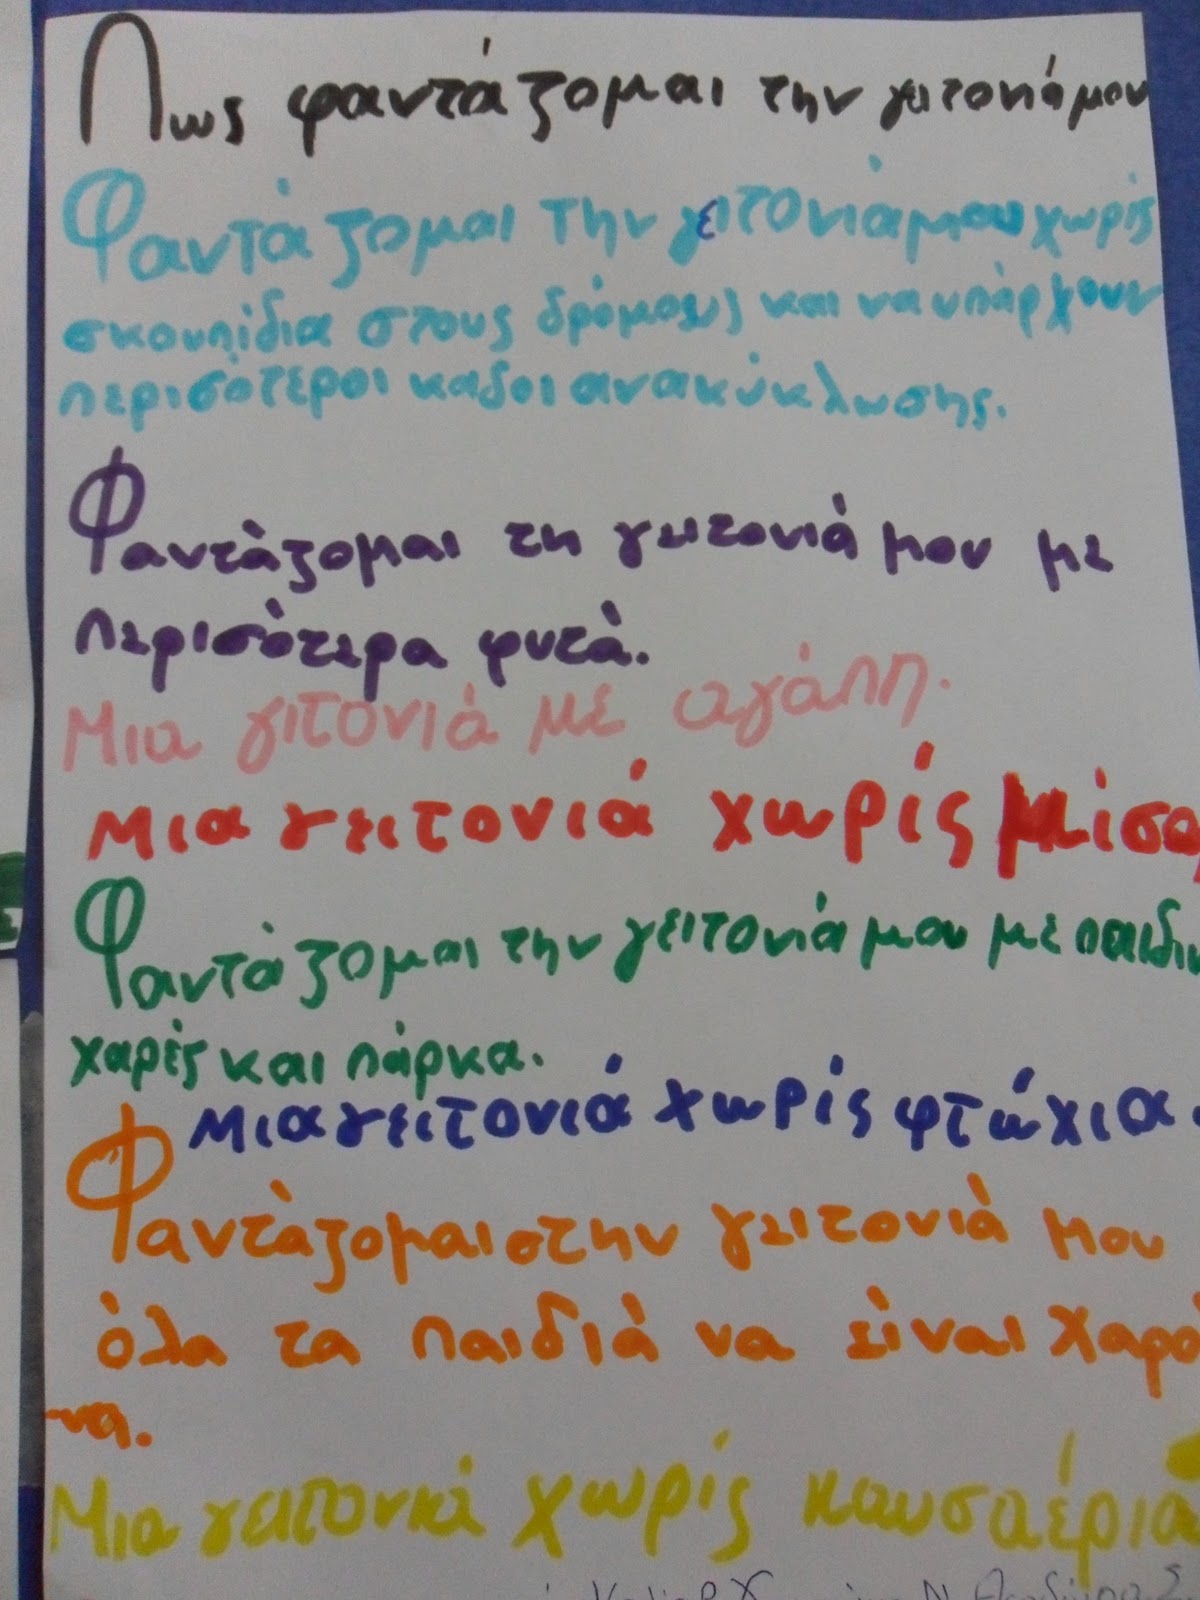 Πως φαντάζομαι την γειτονιά μου
Φαντάζομαι την γειτονιά μου χωρίς
σκουπίδια στους δρόμους και να υπάρχουν
περισότεροι καδοι ανακύκλωσης.
Φαντάζομαι τη γειτονιά μου με
περισότερα φυτά.
Μια γιτονιά με αγάπη.
Μια γειτονιά χωρίς μίσο
Φαντάζομαι την γειτονιά μου με παιδικ
χαρές και πάρκα.
Μια γειτονιά χωρίς φτώχια.
Φαντάζομαι στην γειτονιά μου
όλα τα παιδιά να είναι χαρο
να.
Μια γειτονιά χωρίς καυσαέρια